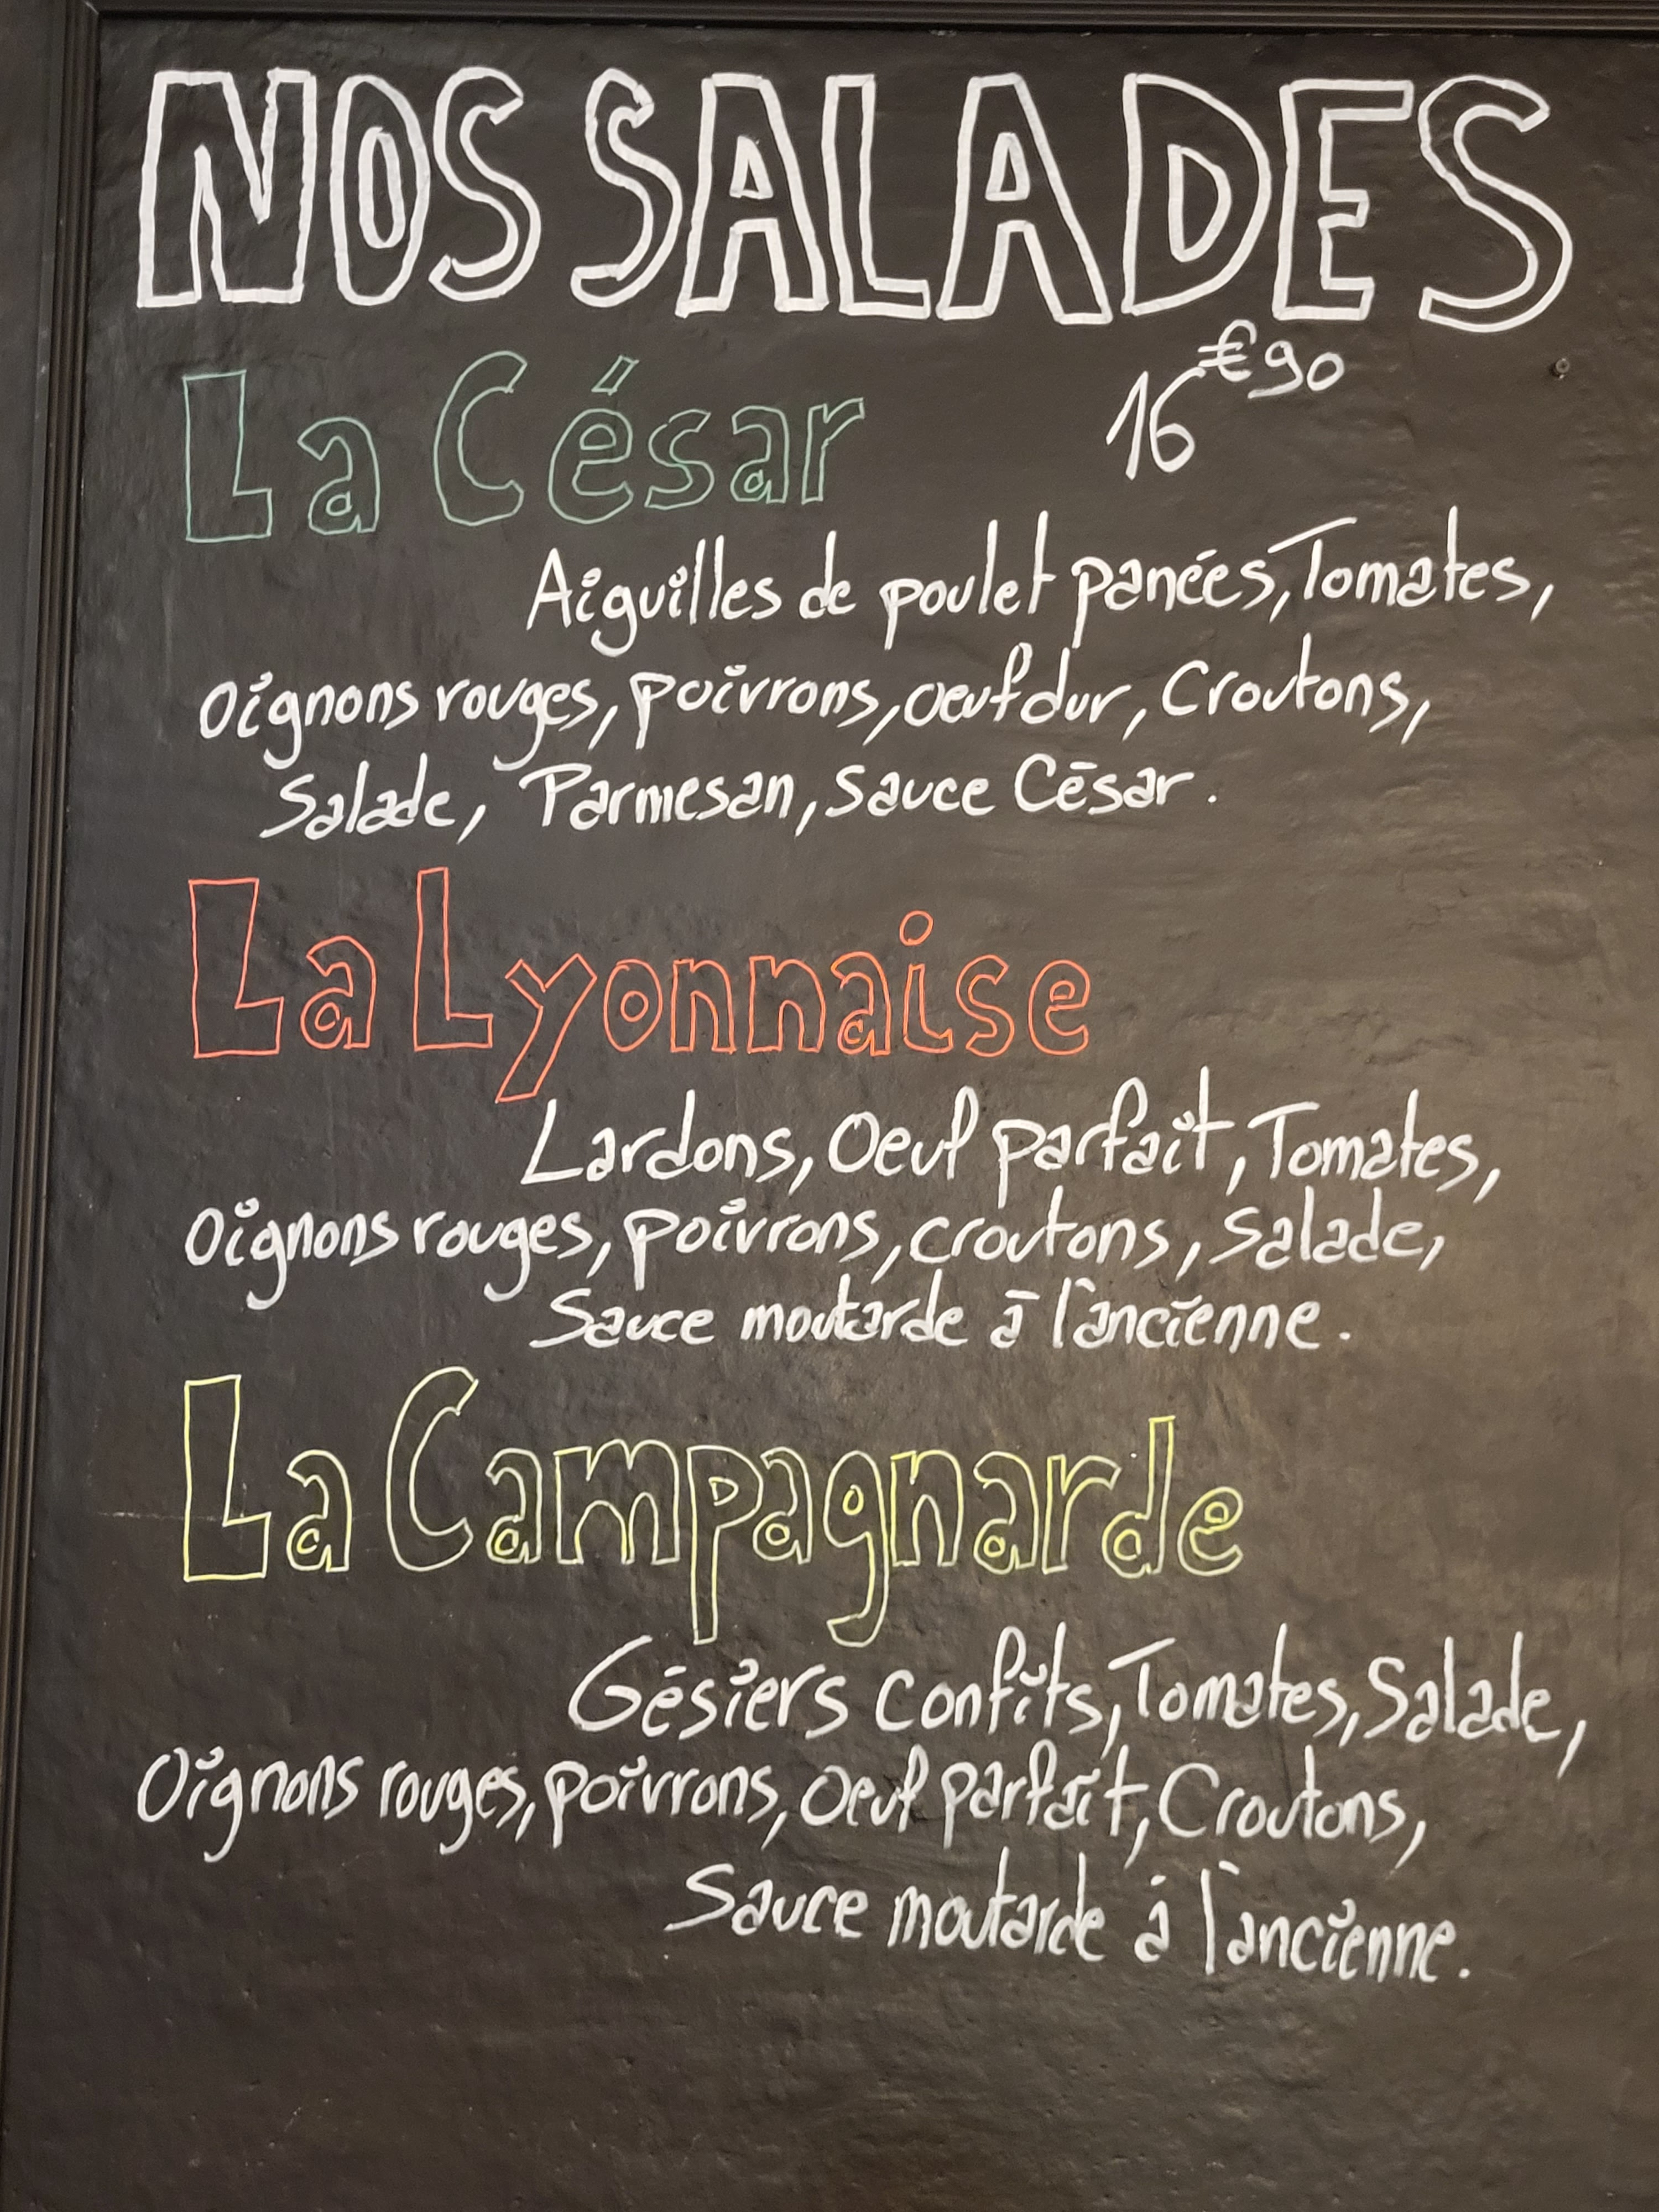 NOS SALADES
La César 16€90
Aiguilles de poulet panées, Tomates,
Oignons rouges, poivrons, oeuf dur, Croutons,
Salade, Parmesan, Sauce César.
La Lyonnaise
Lardons, Oeuf parfait, Tomates,
Oignons rouges, poivrons, croutons, Salade,
Sauce moutarde à l'ancienne.
La Campagnarde
Gésiers confits, Tomates, Salade,
Oignons rouges, poivrons, Oeuf parfait, Croutons,
Sauce moutarde à l'ancienne.